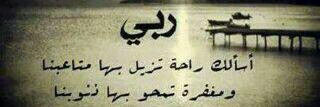 ربي
أسألك راحة تزيل بها متاعبنا
ومغفرة تمحو بها ذنوبنا